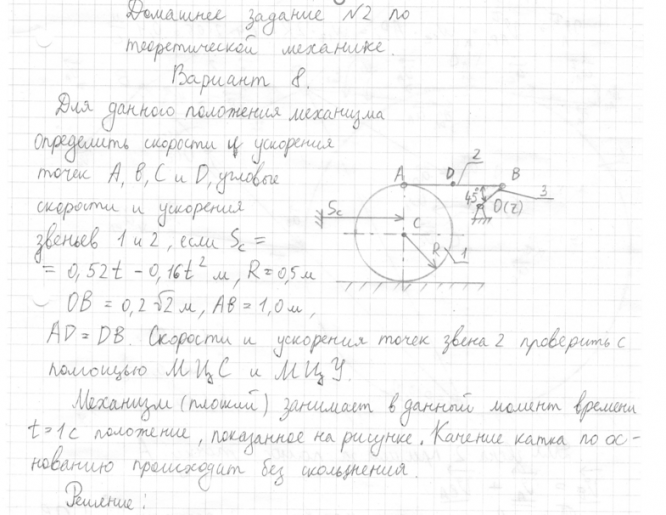 Домашнее задание N2 по
теоретической механике.
Вариант 8.
Для данного положения механизма
определить скорости и ускорения
точек A, B, C и D, угловые
скорости и ускорения
звеньев 1 и 2, если Sc =
= 0,52t - 0,16t² м, R = 0,5 м
OB = 0,2√2 м, AB = 1,0 м,
AD = DB. Скорости и ускорения точек звена 2 проверить с
помощью МЦС и МЦУ.
Механизм (плоский) занимает в данный момент времени
t = 1 с положение, показанное на рисунке. Качение катка по ос-
нованию происходит без скольжения.
Решение:
2
A D B
45° 3
O(τ)
Sc
C
R
1